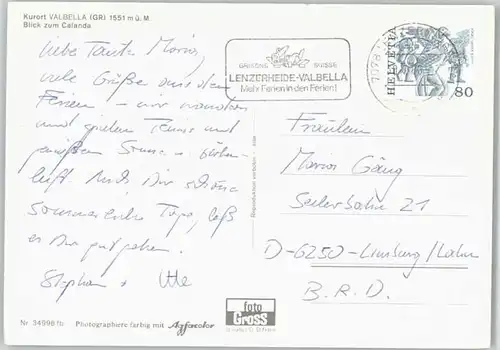 Kurort VALBELLA (GR) 1551 m ü. M.
Blick zum Calanda
GRISONS SUISSE
LENZERHEIDE-VALBELLA
Mehr Ferien in den Ferien!
HELVETIA
80
Liebe Tante Maria,
viele Grüße aus den
Ferien – wir wandern
und spielen Tennis und
genießen Sonne u. Höhen-
luft. Auch Dir schöne
Sommerliche Tage, laß
es Dir gut gehen.
Stephan + Ute
Reproduktion verboten
Fräulein
Maria Gäng
Seilerbahn 21
D-6250-Limburg/Lahn
B.R.D.
foto
Gross
Nr. 34998 fb
Photographiere farbig mit Agfacolor